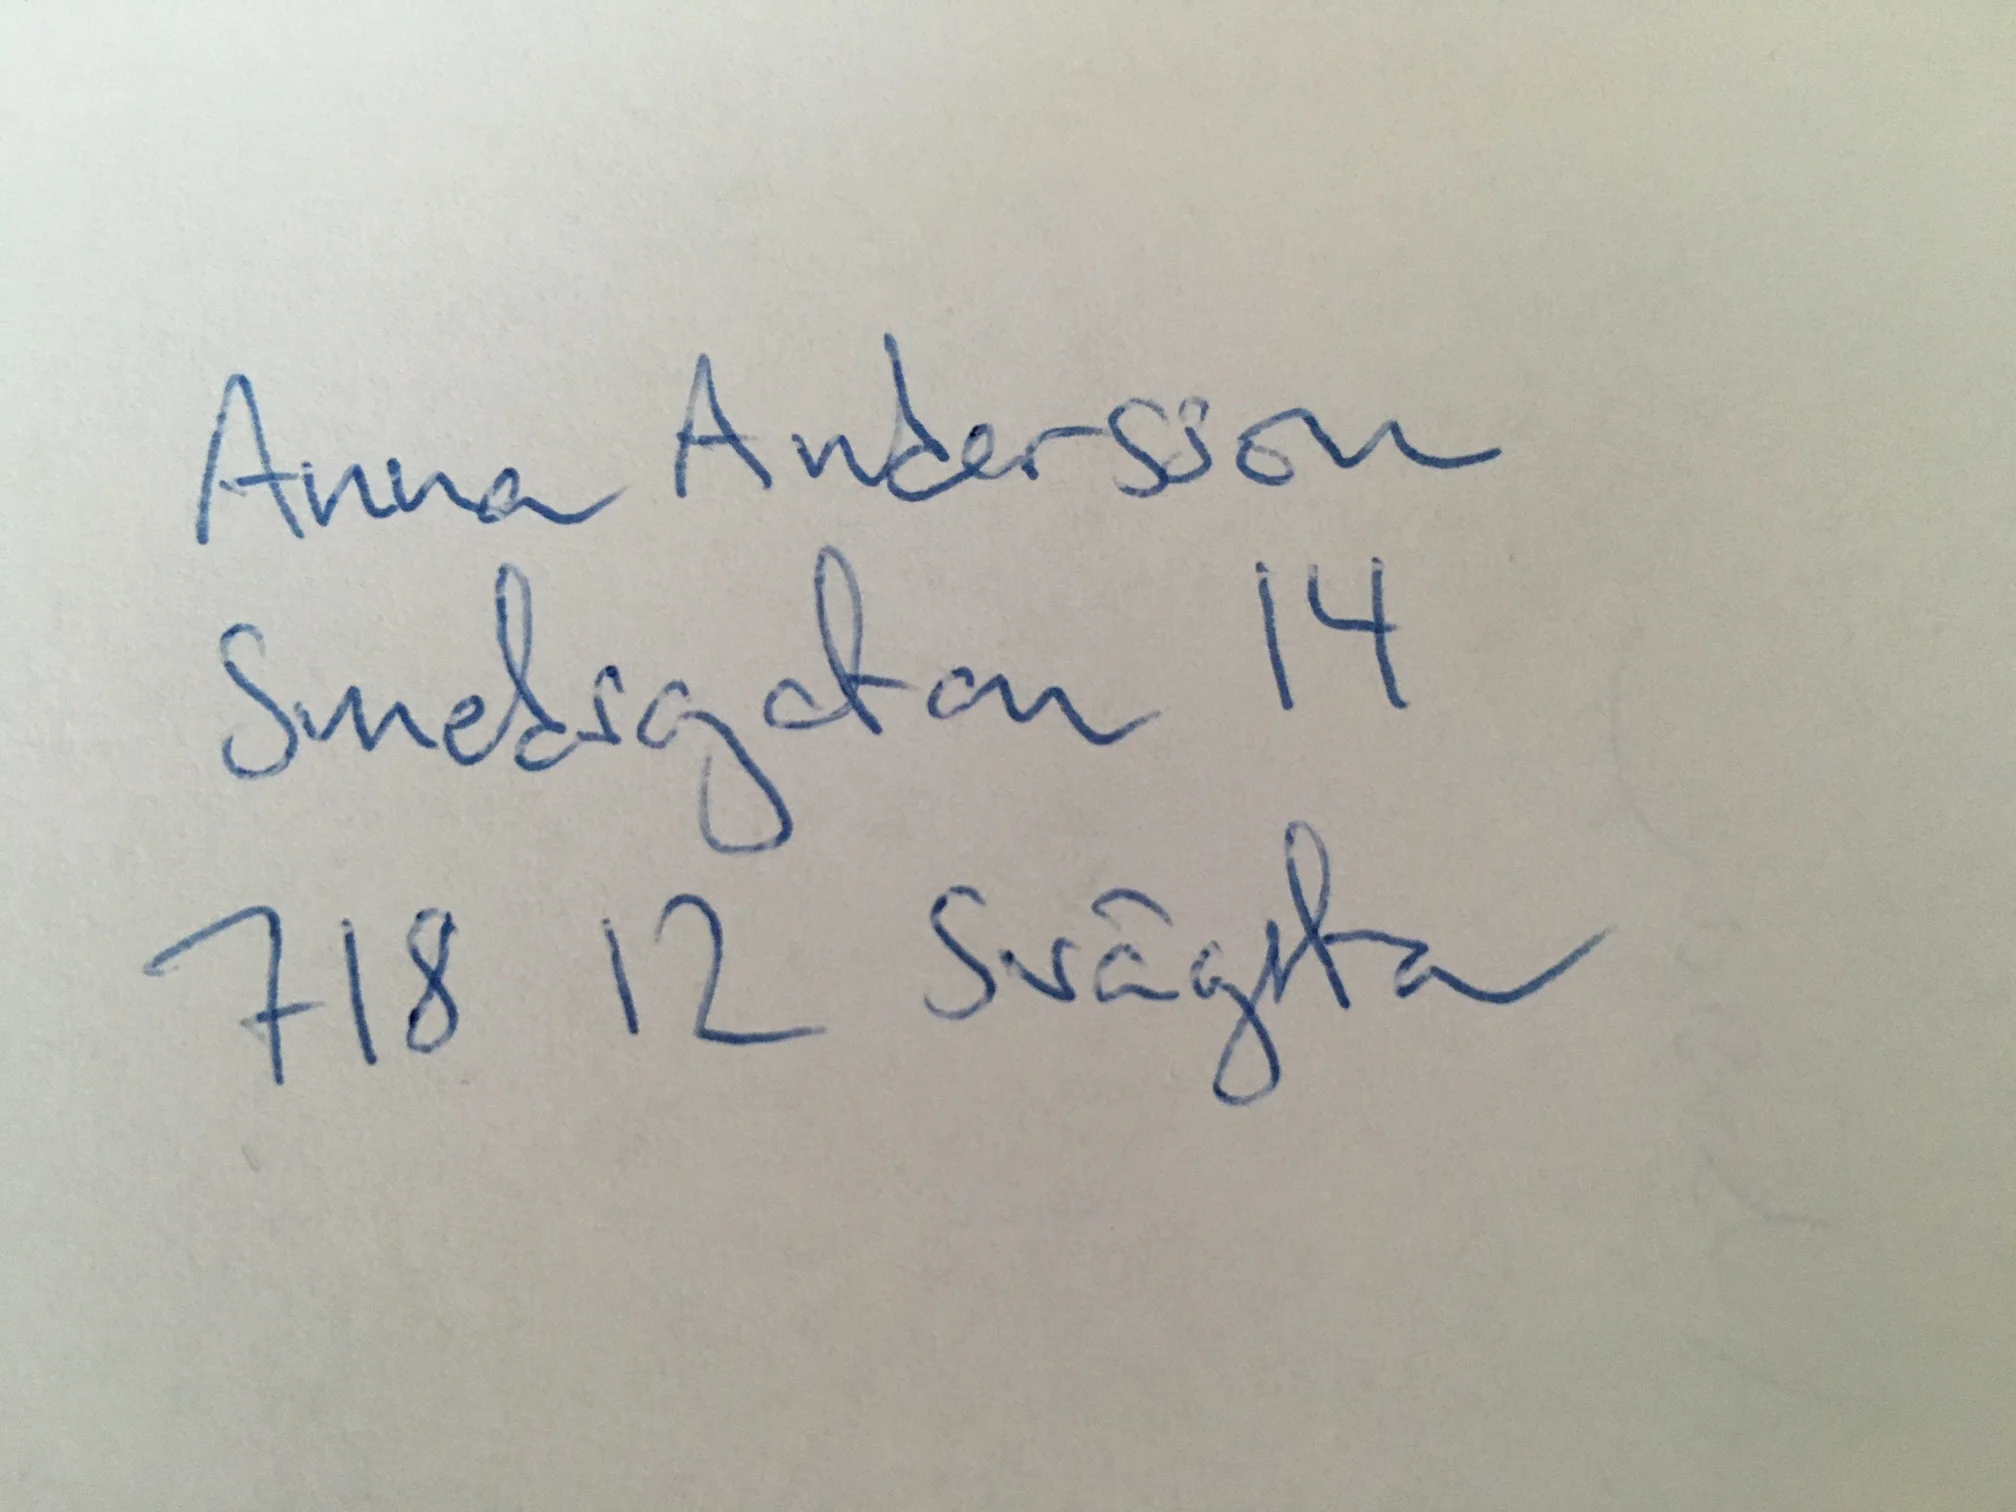 Anna Andersson
Smedsgatan 14
718 12 Svägsta